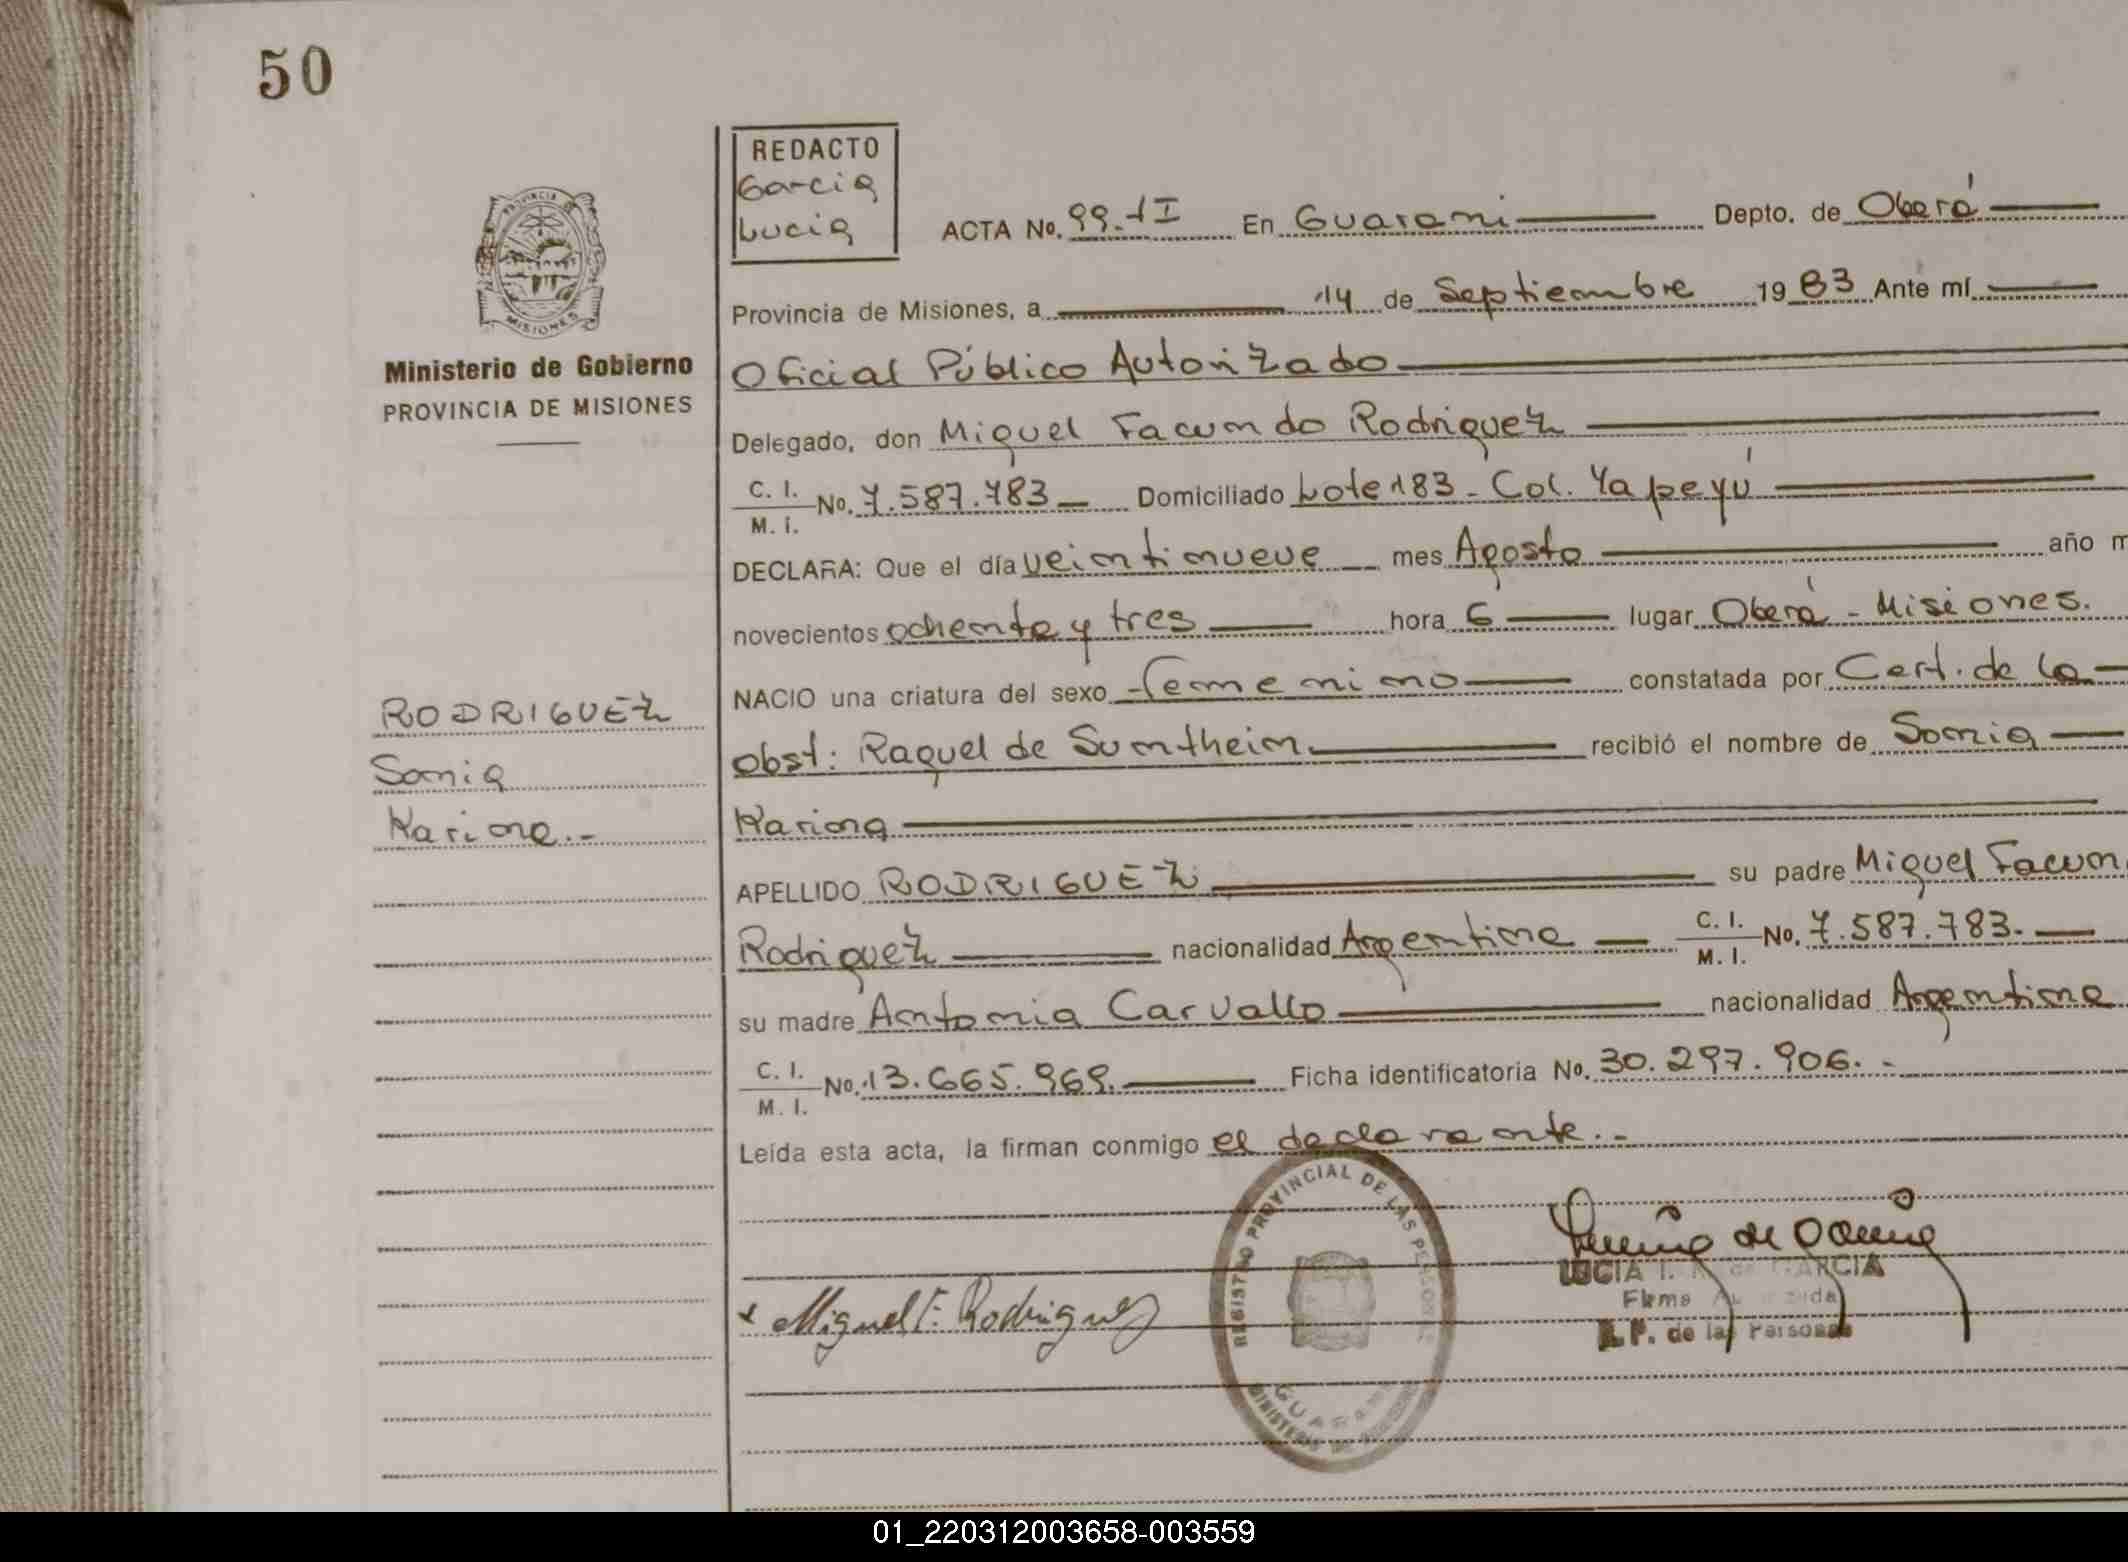 50
REDACTO
Garcia
Lucia
ACTA No. 99. II En Guarani Depto. de Oberá
Provincia de Misiones, a 14 de Septiembre 1983 Ante mí
Oficial Público Autorizado
Delegado, don Miguel Facundo Rodriguez
C. I.
M. I. No. 7.587.783 Domiciliado Lote 183 - Col. Yapeyú
DECLARA: Que el día veintinueve mes Agosto año m
novecientos ochenta y tres hora 6 lugar Oberá - Misiones.
NACIO una criatura del sexo femenino constatada por Cert. de la
obst: Raquel de Sumtheim recibió el nombre de Sonia
Karina
APELLIDO RODRIGUEZ su padre Miguel Facun
Rodriguez nacionalidad Argentina C. I.
M. I. No. 7.587.783.
su madre Antonia Carvallo nacionalidad Argentina
C. I.
M. I. No. 13.665.969. Ficha identificatoria No. 30.297.906. -
Leída esta acta, la firman conmigo el declarante. -
PROVINCIA DE
MISIONES
Ministerio de Gobierno
PROVINCIA DE MISIONES
RODRIGUEZ
Sonia
Karina. -
REGISTRO PROVINCIAL DE LAS PERSONAS
GUARANI
MINISTERIO DE GOBIERNO
Lucia de Garcia
LUCIA de GARCIA
Firma Autorizada
R. P. de las Personas
x Miguel F. Rodriguez
01_220312003658-003559